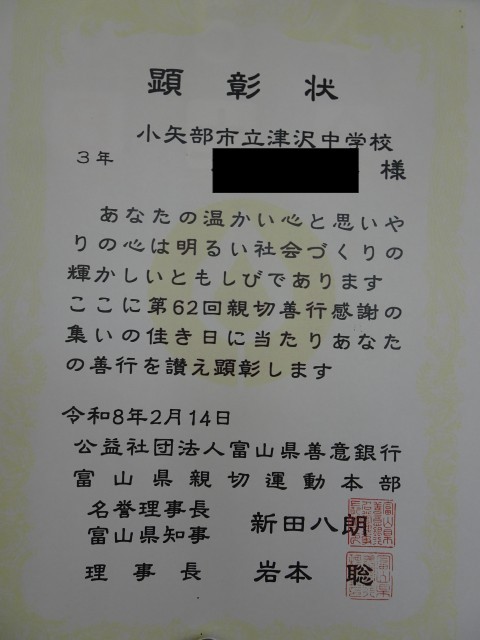 顕彰状
小矢部市立津沢中学校
3年
様
あなたの温かい心と思いや
りの心は明るい社会づくりの
輝かしいともしびであります
ここに第62回親切善行感謝の
集いの佳き日に当たりあなた
の善行を讃え顕彰します
令和8年2月14日
公益社団法人富山県善意銀行
富山県親切運動本部
名誉理事長
富山県知事 新田八朗
理事長 岩本 聡